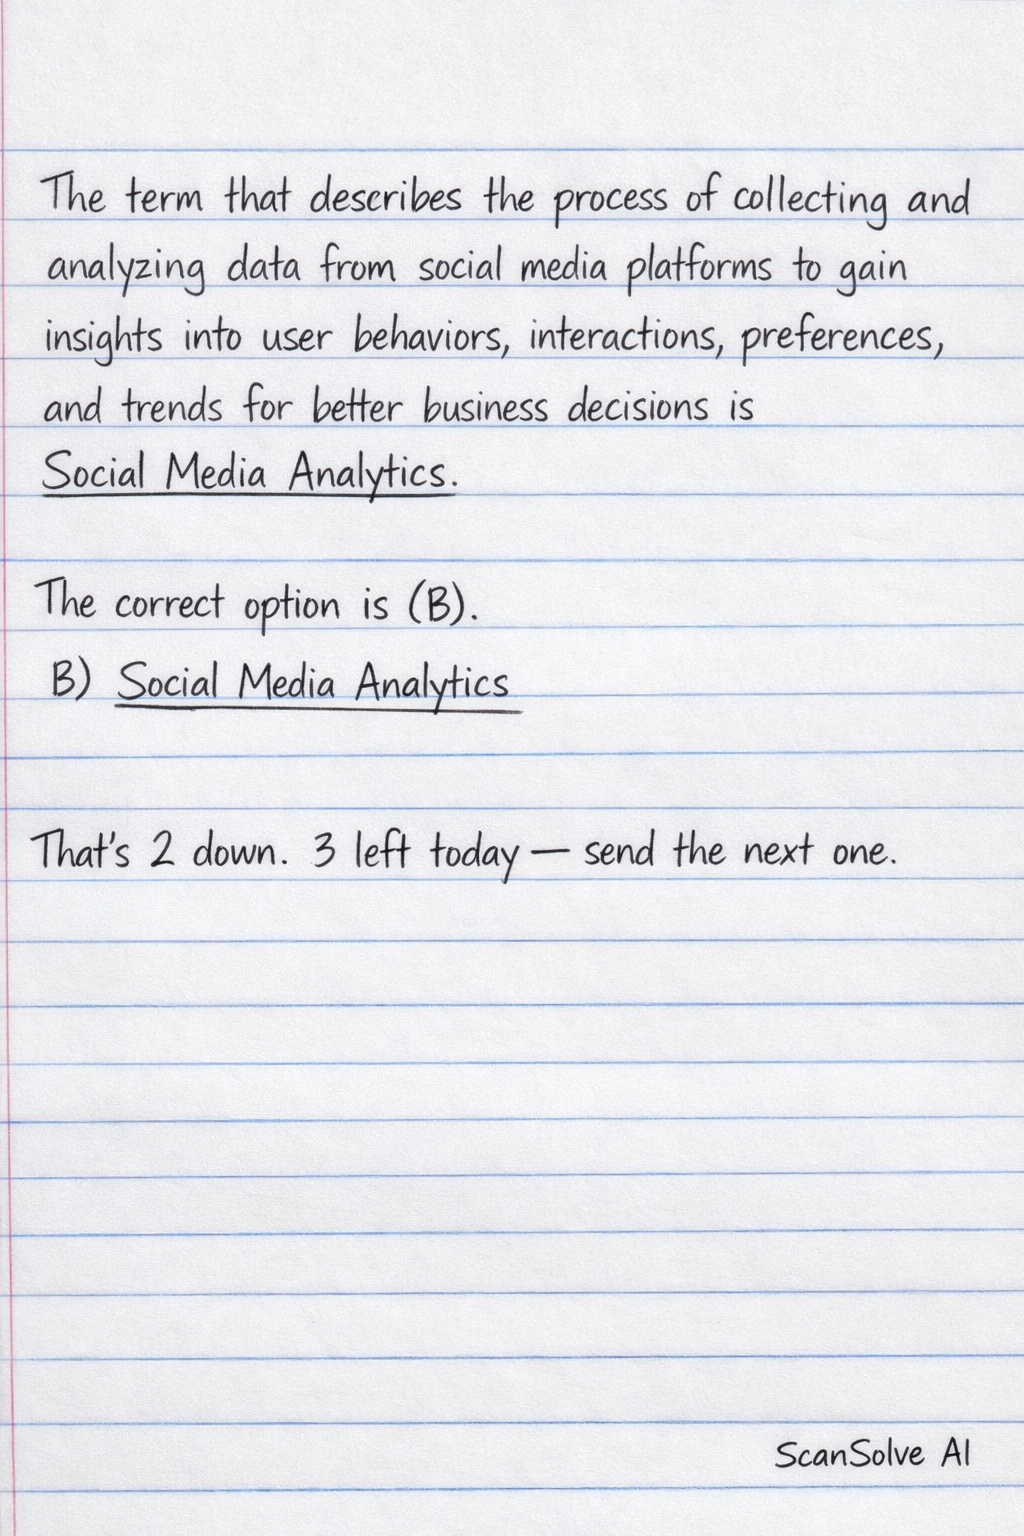 The term that describes the process of collecting and
analyzing data from social media platforms to gain
insights into user behaviors, interactions, preferences,
and trends for better business decisions is
Social Media Analytics.
The correct option is (B).
B) Social Media Analytics
That's 2 down. 3 left today — send the next one.
ScanSolve AI